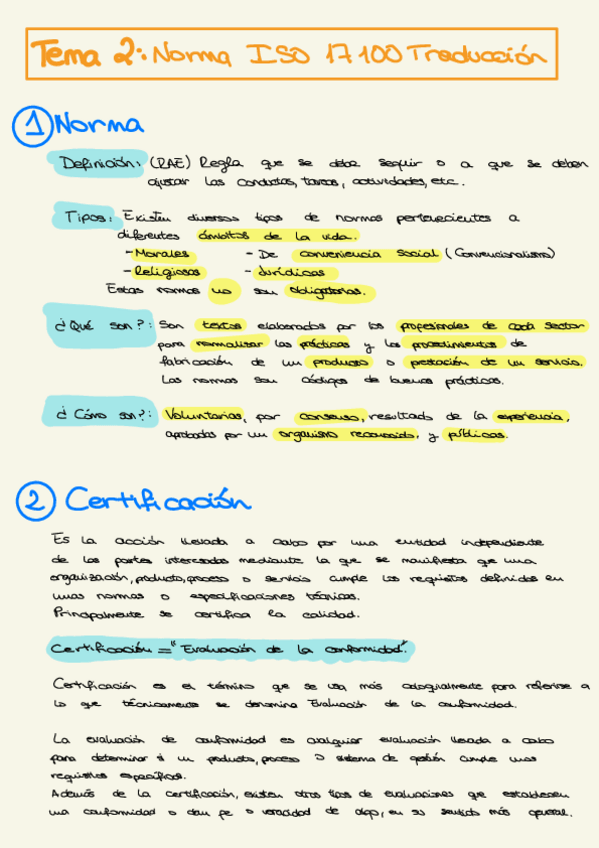 Tema 2: Norma ISO 17100 Traducción
1 Norma
Definición: (RAE) Regla que se debe seguir o a que se deben
ajustar las conductas, tareas, actividades, etc.
Tipos: Existen diversos tipos de normas pertenecientes a
diferentes ámbitos de la vida.
- Morales - De conveniencia social (Convencionalismo)
- Religiosas - Jurídicas
Estas normas no son obligatorias.
¿Qué son?: Son textos elaborados por los profesionales de cada sector
para normalizar las prácticas y los procedimientos de
fabricación de un producto o prestación de un servicio.
Las normas son códigos de buenas prácticas.
¿Cómo son?: Voluntarias, por consenso, resultado de la experiencia,
aprobadas por un organismo reconocido, y públicas.
2 Certificación
Es la acción llevada a cabo por una entidad independiente
de las partes interesadas mediante la que se manifiesta que una
organización, producto, proceso o servicio cumple los requisitos definidos en
unas normas o especificaciones técnicas.
Principalmente se certifica la calidad.
Certificación = "Evaluación de la conformidad".
Certificación es el término que se usa más coloquialmente para referirse a
lo que técnicamente se denomina Evaluación de la conformidad.
La evaluación de conformidad es cualquier evaluación llevada a cabo
para determinar si un producto, proceso o sistema de gestión cumple unos
requisitos específicos.
Además de la certificación, existen otros tipos de evaluaciones que establecen
una conformidad o dan fe o veracidad de algo, en su sentido más general.